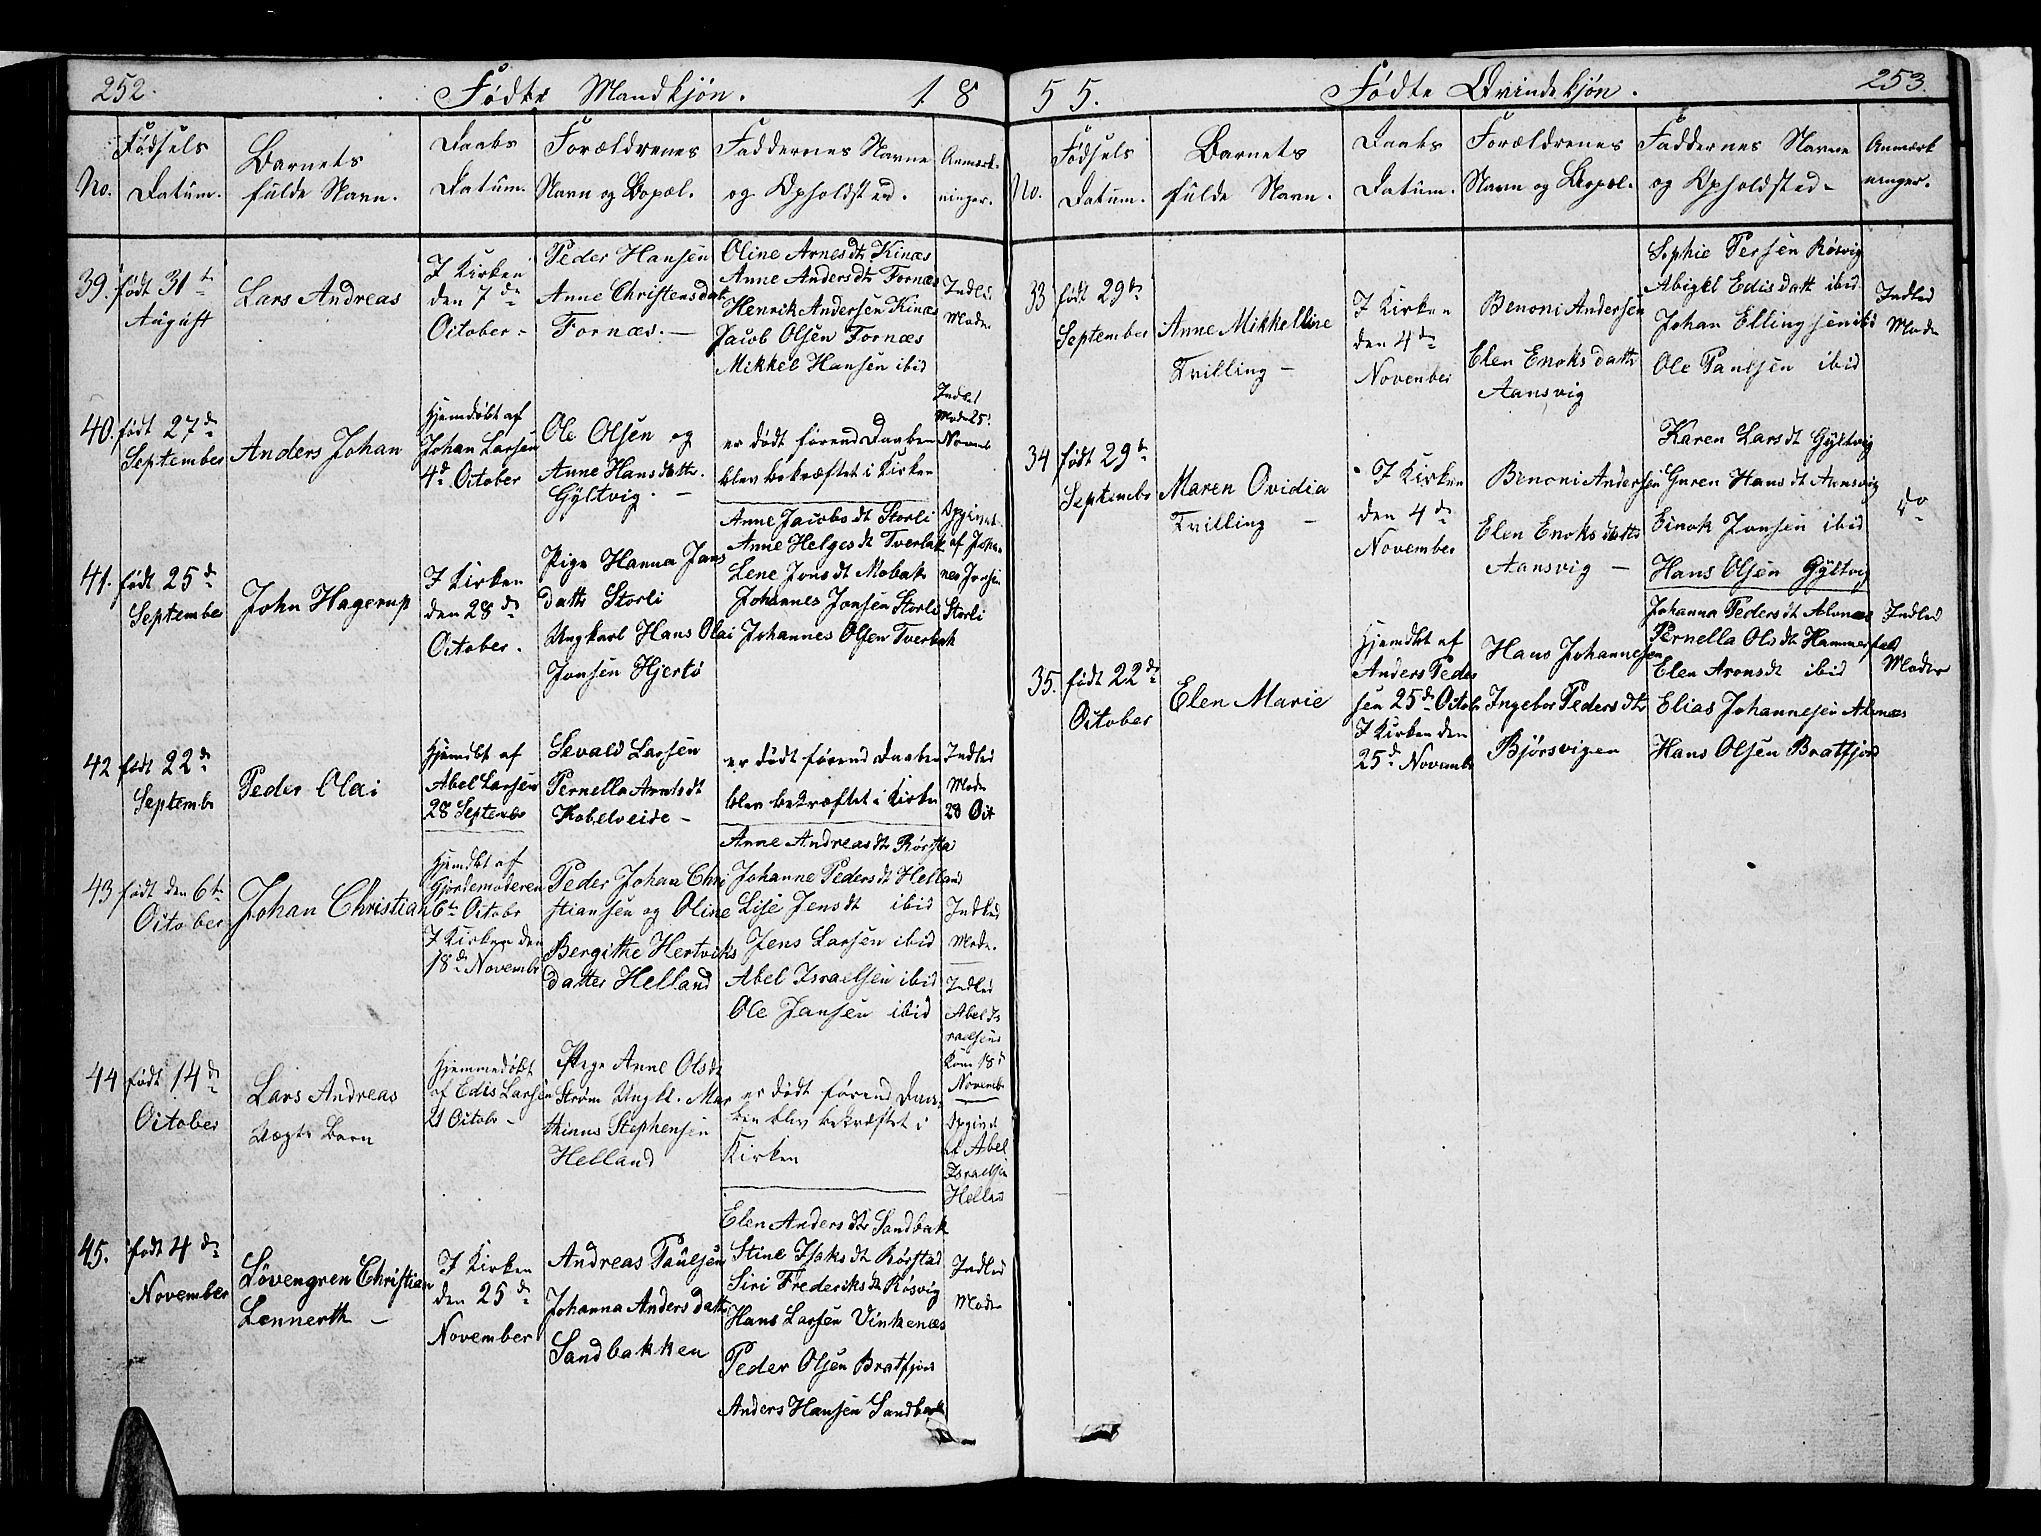 252.
Fødte Mandkjøn.
1 8
No.
Fødsels
Datum.
Barnets
fulde Navn.
Daabs
Datum.
Forældrenes
Navn og Bopæl.
Faddernes Navne
og Opholdsted.
Anmærk-
ninger.
39.
født 31te
August
Lars Andreas
I Kirken
den 7de
October-
Peder Hansen
Anne Christensdat
Fornæs.-
Oline Arnesdtr Kinæs
Anne Andersdtr Fornæs
Henrik Andersen Kinæs
Jacob Olsen Fornæs
Mikkel Hansen ibid
Indled
Mode
40.
født 27de
September
Anders Johan
Hjemdøbt af
Johan Larsen
4de October
Ole Olsen og
Anne Hansdatter.
Gyltvig.-
er dødt førend Daaben
blev bekræftet i Kirken
Indlet
Mode 25
Novemb
41.
født 25de
September
John Hagerup
I Kirken
den 28de
October.
Pige Hanna Jons
datter Storli
Ungkarl Hans Olai
Jonsen Hjertø
Anne Jacobsdt Storli
Anne Helgesdt Tverbak
Lene Jonsdt Mobak
Johannes Jonsen Storli
Johannes Olsen Tverbak
Opgivet
af Johan
nes Jonsen
Storli
42
født 22de
Septembr
Peder Olai
Hjemdbt af
Abel Larsen
28 Septembr
Sevald Larsen
Pernella Arntsdt
Kobelveide-
er dødt førend Daaben
blev bekræftet i Kirken
Indled
Mode
28 Oct
43
født den 6te
October
Johan Christian
Hjemdbt af
Gjordemoderen
6te Octobr
I Kirken den
18de Novembr
Peder Johan Chri
stiansen og Oline
Bergitke Hertviks
datter Helland
Anne Andreasdtr Rørsta
Johanne Pedersdt Helland
Lise Jensdt ibid
Jens Larsen ibid
Abel Israelsen ibid
Ole Jansen ibid
Indled
Mode.
44
født 14de
October
Lars Andreas
Uægte Barn
Hjemmedøbt
af Edis Larsen
21 Octobr-
Pige Anne Olsdt
Strøm Ungkl. Mar
thinus Stephensen
Helland
er dødt førend Daa-
ben blev bekræftet i
Kirken
Indled
Abel Is
raelsens
Kone 18d
Novembr
Opgivet
af Abel
Israelsen
Helland
45.
født 4de
November
Lövengren Christian
Lennerth-
I Kirken
den 25de
November
Andreas Paulsen
Johanna Andersdatter
Sandbakken
Elen Andersdtr Sandbak
Stine Isaksdt Rørstad
Siri Frederiksdt Røsvig
Hans Larsen Vinkenæs
Peder Olsen Bratfjord
Anders Hansen Sandbak
Indled
Mode
5 5.
Fødte Qvindekjøn.
253.
No.
Fødsels
Datum.
Barnets
fulde Navn.
Daabs
Datum.
Forældrenes
Navn og Bopæl.
Faddernes Navne
og Opholdsted-
Anmærk
ninger.
33
født 29de
September
Anne Mikkelline
Tvilling-
I Kirken
den 4de
November
Benoni Andersen
Elen Enoksdatter
Aansvig
Sophie Persen Røsvig
Abigel Edisdatt ibid
Johan Ellingsen ibid
Ole Paulsen ibid
Indled
Mode
34
født 29de
Septembr
Maren Ovidia
Tvilling-
I Kirken
den 4de
November
Benoni Andersen
Elen Enoksdatter
Aansvig-
Karen Larsdt Gyltvig
Guren Hansdt Aansvig
Einok Jonsen ibid
Hans Olsen Gyltvig
do
35.
født 22de
October
Elen Marie
Hjemdbt af
Anders Peder
sen 25de Octobr
I Kirken den
25de Novembr
Hans Johannesen
Ingebor Pedersdtr
Bjørsvigen
Johanna Pedersdt Alenæs
Pernella Olsdt Hammerfald
Elen Aronsdt ibid
Elias Johannesen Alenæs
Hans Olsen Bratfjord
Indled
Moder